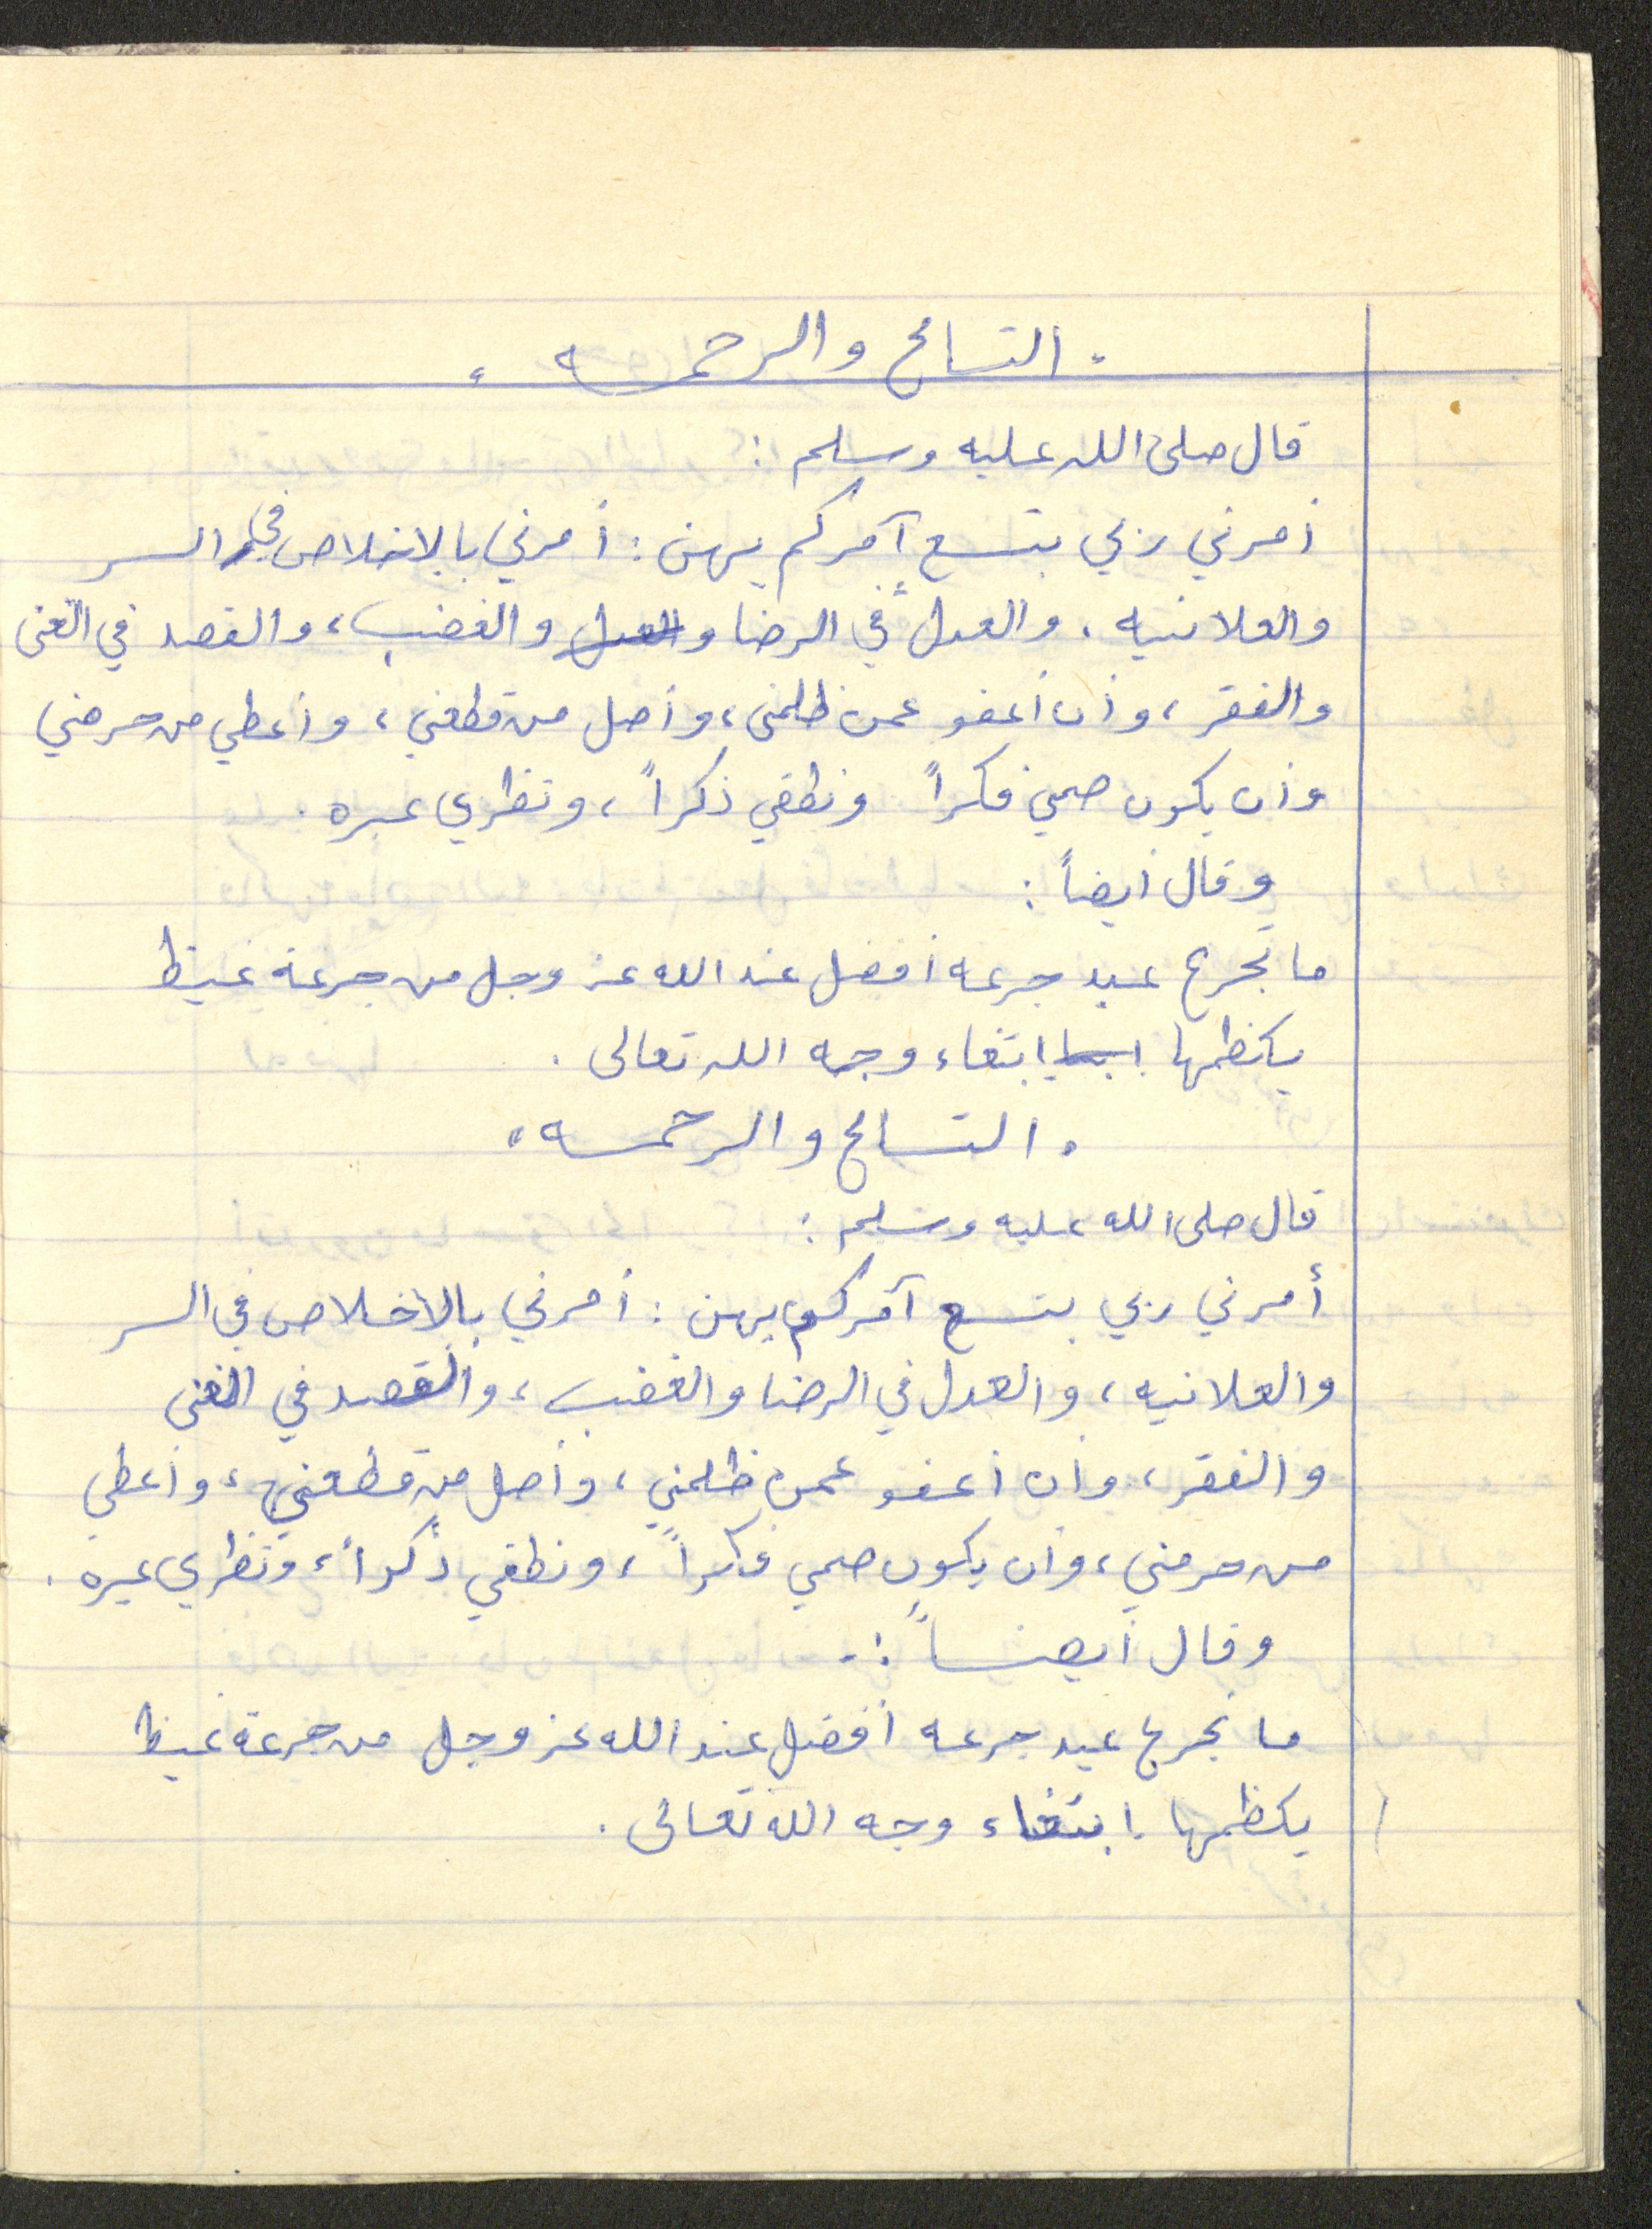 . التسامح والرحمه .
قال صلى الله عليه وسلم :
أمرني ربي بتسع آمركم بهن : أمرني بالاخلاص في السر
والعلانيه ، والعدل في الرضا والعدل والغضب ، والقصد في الغنى
والفقر ، وأن أعفو عمن ظلمنى ، وأصل من قطعني ، وأعطي من حرمني
وأن يكون صمتي فكراً ونطقي ذكراً ، ونظري عبره .
وقال أيضاً :
ما تجرع عبد جرعه أفضل عند الله عز وجل من جرعة غيظ
يكظمها ابتغاء وجه الله تعالى .
. التسامح والرحمه .
قال صلى الله عليه وسلم :
أمرني ربي بتسع آمركم بهن : أمرني بالاخلاص في السر
والعلانيه ، والعدل في الرضا والغضب ، والقصد في الغنى
والفقر ، وأن أعفو عمن ظلمني ، وأصل من قطعني ، وأعطي
من حرمني ، وأن يكون صمتي فكراً ، ونطقي ذكراً ، ونظري عبره .
وقال أيضاً : .
ما تجرع عبد جرعه أفضل عند الله عز وجل من جرعة غيظ
يكظمها ابتغاء وجه الله تعالى .